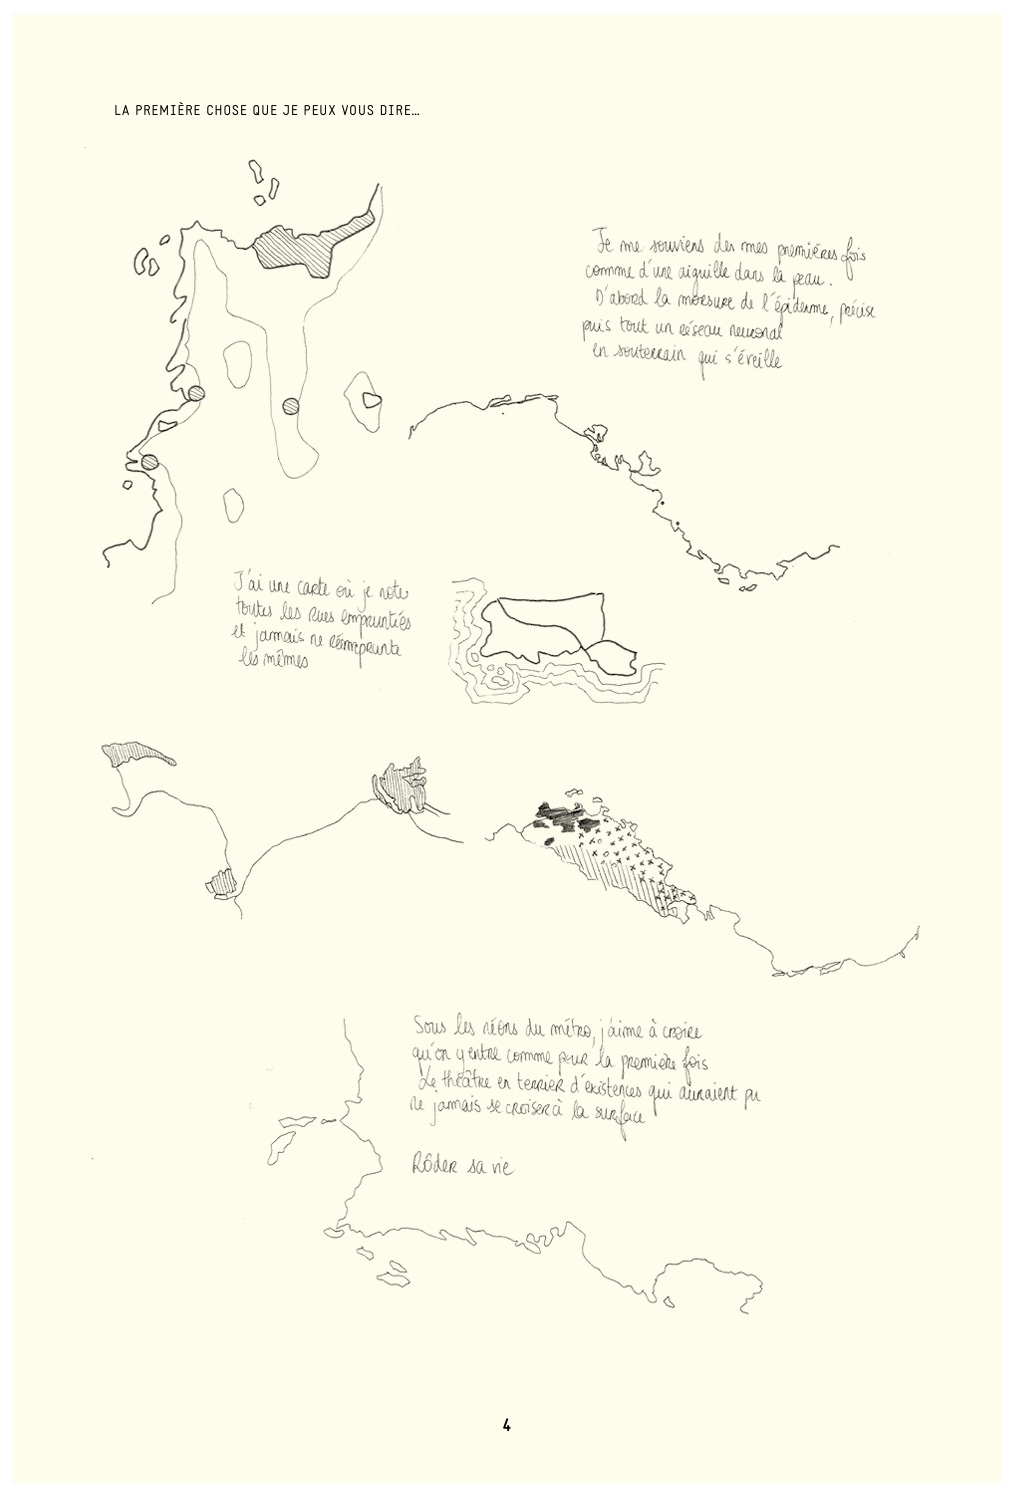 LA PREMIÈRE CHOSE QUE JE PEUX VOUS DIRE…
Je me souviens des mes premières fois
comme d'une aiguille dans la peau.
D'abord la morsure de l'épiderme, précise
puis tout un réseau neuronal
en souterrain qui s'éveille
J'ai une carte où je note
toutes les rues empruntées
et jamais ne réemprunte
les mêmes
Sous les néons du métro, j'aime à croire
qu'on y entre comme pour la première fois
Le théâtre en terrier d'existences qui auraient pu
ne jamais se croiser à la surface
Rôder sa vie
4